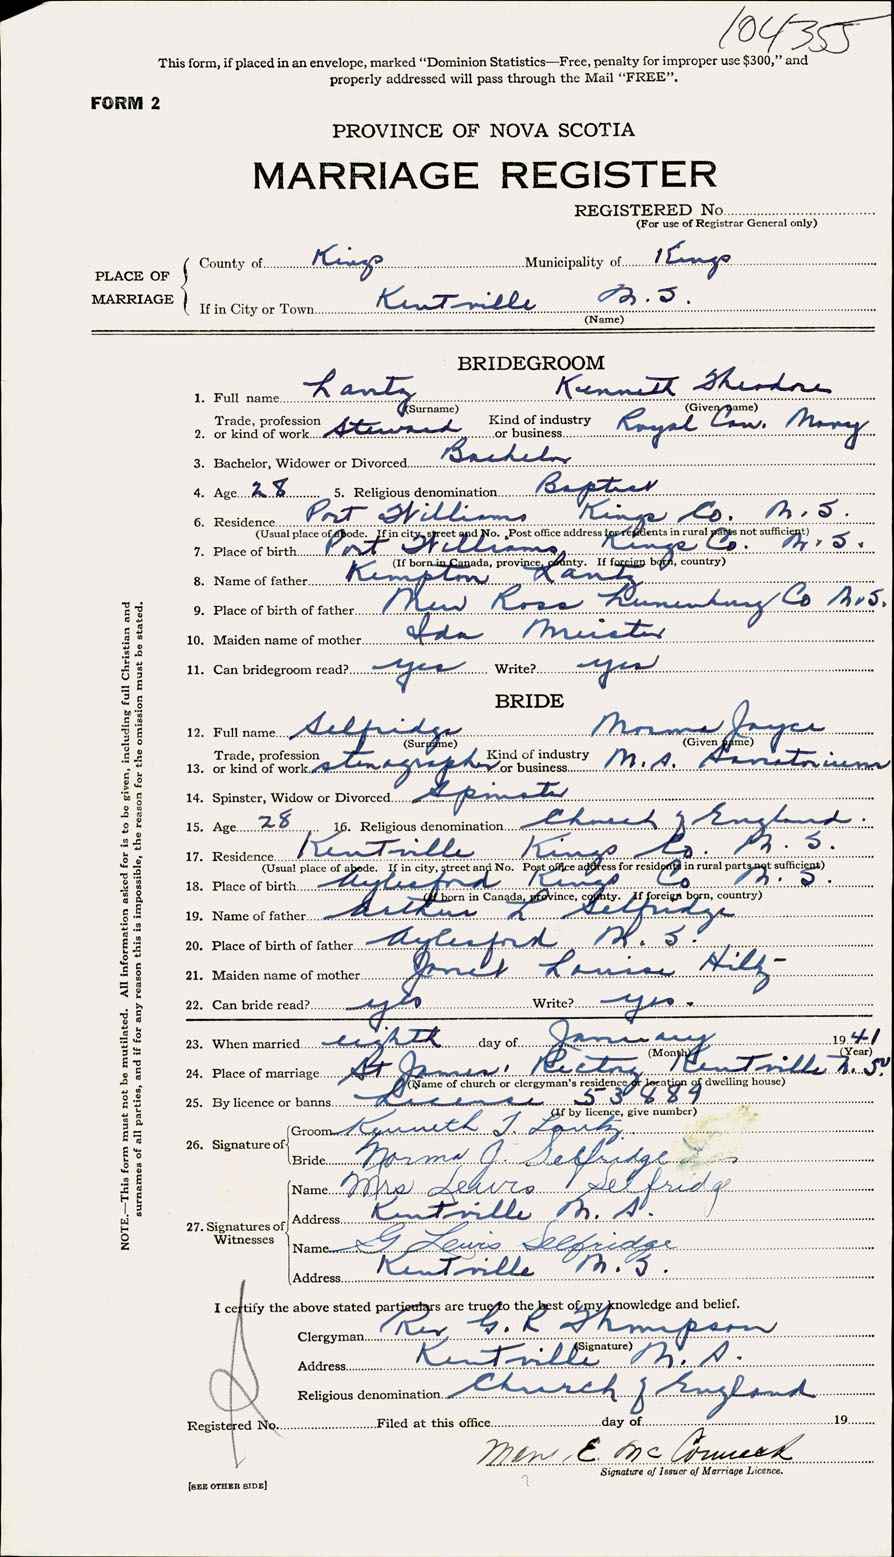 104355
This form, if placed in an envelope, marked "Dominion Statistics—Free, penalty for improper use $300," and
properly addressed will pass through the Mail "FREE".
FORM 2
PROVINCE OF NOVA SCOTIA
MARRIAGE REGISTER
REGISTERED No.
(For use of Registrar General only)
PLACE OF MARRIAGE
County of Kings Municipality of Kings
If in City or Town Kentville N. S.
(Name)
BRIDEGROOM
1. Full name Lantz Kenneth Theodore
(Surname) (Given name)
2. Trade, profession or kind of work Steward Kind of industry or business Royal Can. Navy
3. Bachelor, Widower or Divorced Bachelor
4. Age 28 5. Religious denomination Baptist
6. Residence Port Williams Kings Co. N. S.
(Usual place of abode. If in city, street and No. Post office address for residents in rural parts not sufficient)
7. Place of birth Port Williams Kings Co. N. S.
(If born in Canada, province, county. If foreign born, country)
8. Name of father Kempton Lantz
9. Place of birth of father New Ross Lunenburg Co N.S.
10. Maiden name of mother Ida Meister
11. Can bridegroom read? yes Write? yes
BRIDE
12. Full name Selfridge Norma Joyce
(Surname) (Given name)
13. Trade, profession or kind of work stenographer Kind of industry or business N.S. Sanatorium
14. Spinster, Widow or Divorced Spinster
15. Age 28 16. Religious denomination Church of England.
17. Residence Kentville Kings Co. N. S.
(Usual place of abode. If in city, street and No. Post office address for residents in rural parts not sufficient)
18. Place of birth Aylesford Kings Co N. S.
(If born in Canada, province, county. If foreign born, country)
19. Name of father Arthur L Selfridge
20. Place of birth of father Aylesford N. S.
21. Maiden name of mother Janet Louise Hiltz
22. Can bride read? yes Write? yes.
23. When married eighth day of January 1941
(Month) (Year)
24. Place of marriage St James' Rectory Kentville N.S.
(Name of church or clergyman's residence or location of dwelling house)
25. By licence or banns License 53889
(If by licence, give number)
26. Signature of Groom Kenneth T Lantz
Bride Norma J. Selfridge
27. Signatures of Witnesses
Name Mrs Lewis Selfridge
Address Kentville N. S.
Name G Lewis Selfridge
Address Kentville N. S.
I certify the above stated particulars are true to the best of my knowledge and belief.
Clergyman Rev G. R Thompson
(Signature)
Address Kentville N. S.
Religious denomination Church of England
Registered No. Filed at this office day of 19
E. McCormack
Signature of Issuer of Marriage Licence.
[SEE OTHER SIDE]
NOTE.—This form must not be mutilated. All information asked for is to be given, including full Christian and
surnames of all parties, and if for any reason this is impossible, the reason for the omission must be stated.